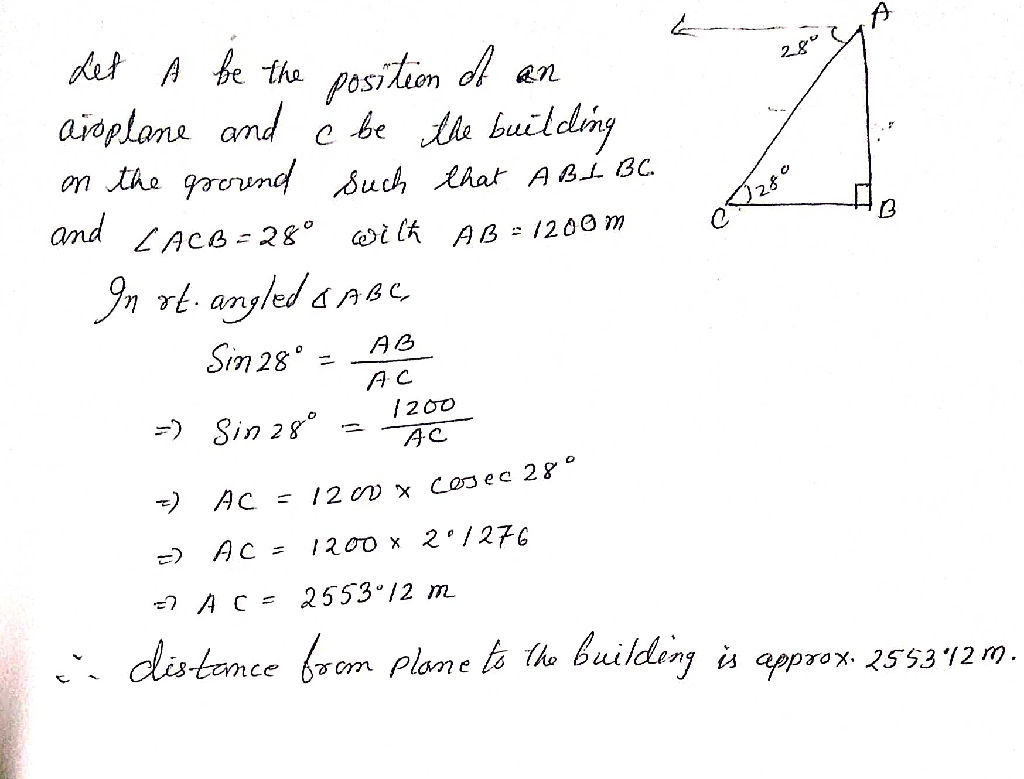 Let A be the position of an
airplane and C be the building
on the ground such that AB ⊥ BC.
and ∠ACB = 28° with AB = 1200 m
In rt. angled ∆ABC,
Sin 28° = AB / AC
=> Sin 28° = 1200 / AC
=> AC = 1200 x cosec 28°
=> AC = 1200 x 2.1276
=> AC = 2553.12 m
∴ distance from plane to the building is approx. 2553.12 m.
A
28°
28°
C
B